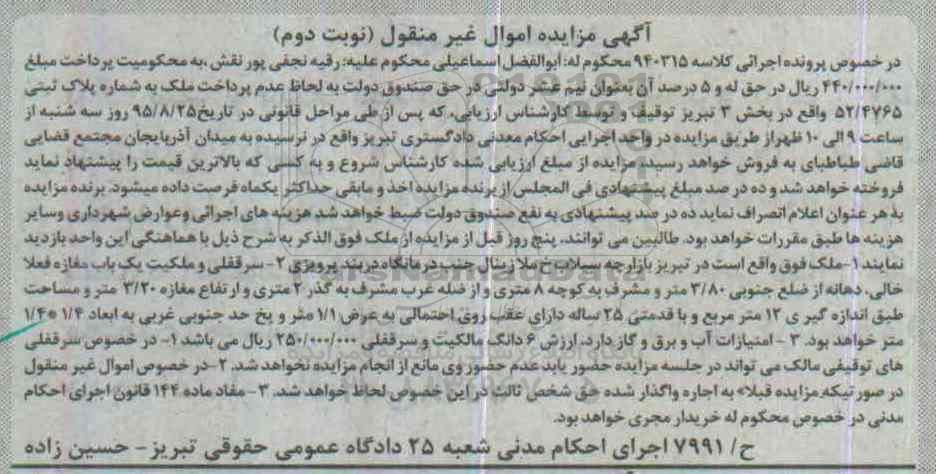 آگهی مزایده اموال غیر منقول (نوبت دوم)
در خصوص پرونده اجرائی کلاسه ۹۴۰۳۱۵ محکوم له: ابوالفضل اسماعیلی محکوم علیه: رقیه نجفی پور نقش ،به محکومیت پرداخت مبلغ
۴۴۰/۰۰۰/۰۰۰ ریال در حق له و ۵ درصد آن بعنوان نیم عشر دولتی در حق صندوق دولت به لحاظ عدم پرداخت ملک به شماره پلاک ثبتی
۵۲/۴۷۶۵ واقع در بخش ۳ تبریز توقیف و توسط کارشناس ارزیابی، که پس از طی مراحل قانونی در تاریخ ۹۵/۸/۲۵ روز سه شنبه از
ساعت ۹ الی ۱۰ ظهر از طریق مزایده در واحد اجرایی احکام معدنی دادگستری تبریز واقع در نرسیده به میدان آذربایجان مجتمع قضایی
قاضی طباطبای به فروش خواهد رسید. مزایده از مبلغ ارزیابی شده کارشناس شروع و به کسی که بالاترین قیمت را پیشنهاد نماید
فروخته خواهد شد و ده در صد مبلغ پیشنهادی فی المجلس از برنده مزایده اخذ و مابقی حداکثر یکماه فرصت داده میشود. برنده مزایده
به هر عنوان اعلام انصراف نماید ده در صد پیشنهادی به نفع صندوق دولت ضبط خواهد شد هزینه های اجرائی وعوارض شهرداری وسایر
هزینه ها طبق مقررات خواهد بود. طالبین می توانند، پنج روز قبل از مزایده از ملک فوق الذکر به شرح ذیل با هماهنگی این واحد بازدید
نمایند ۱-ملک فوق واقع است در تبریز بازارچه سیلاب- ملا زینال جنب درمانگاه دربند پرویزی ۲- سرقفلی و ملکیت یک باب مغازه فعلا
خالی، دهانه از ضلع جنوبی ۳/۸۰ متر و مشرف به کوچه ۸ متری و از ضله غرب مشرف به گذر ۲ متری و ارتفاع مغازه ۳/۲۰ متر و مساحت
طبق اندازه گیر ی ۱۲ متر مربع و با قدمتی ۲۵ ساله دارای عقب روی احتمالی به عرض ۱/۱ متر و پخ حد جنوبی غربی به ابعاد ۱/۴ *۱/۴
متر خواهد بود. ۳ - امتیازات آب و برق و گاز دارد. ارزش ۶ دانگ مالکیت و سرقفلی ۲۵۰/۰۰۰/۰۰۰ ریال می باشد ۱- در خصوص سرقفلی
های توقیفی مالک می تواند در جلسه مزایده حضور یابد عدم حضور وی مانع از انجام مزایده نخواهد شد. ۲-در خصوص اموال غیر منقول
در صور تیکه مزایده قبلا» به اجاره واگذار شده حق شخص ثالث در این خصوص لحاظ خواهد شد. ۳- مفاد ماده ۱۴۴ قانون اجرای احکام
مدنی در خصوص محکوم له خریدار مجری خواهد بود.
ح/ ۷۹۹۱ اجرای احکام مدنی شعبه ۲۵ دادگاه عمومی حقوقی تبریز- حسین زاده